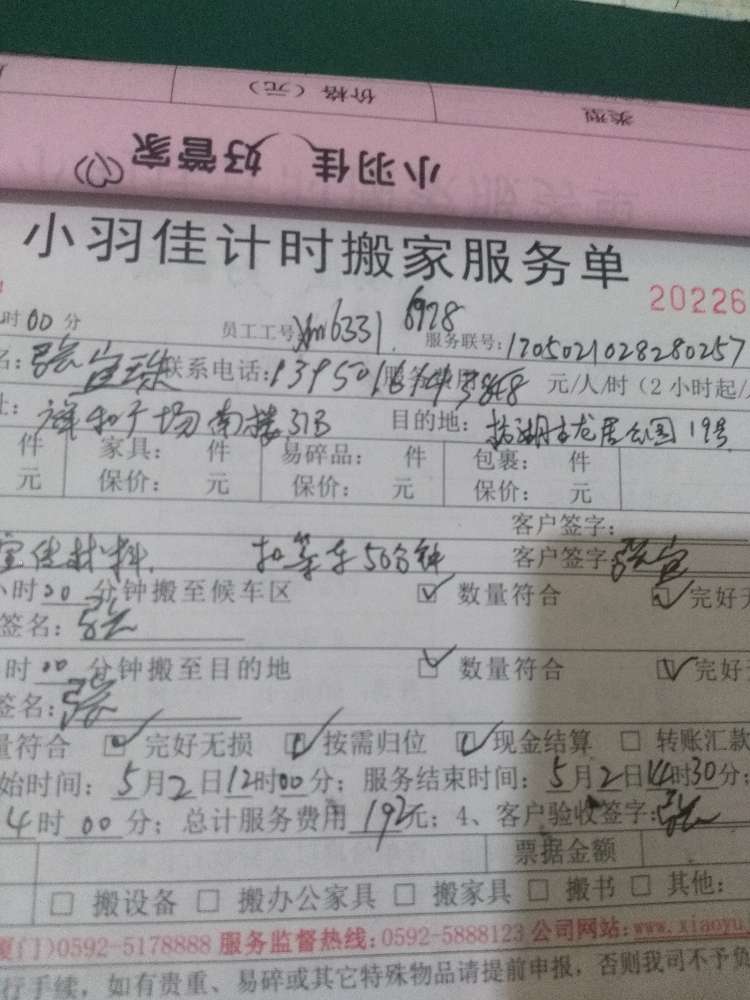 价格（元） 类型
小羽佳 好管家
小羽佳计时搬家服务单
20226
时00分 员工工号 xm6331 6928 服务联号:1705021028280257
名: 张宜 联系电话: 139501 48 元/人/时（2小时起/
址: 祥和广场南楼31B 目的地: 古龙居公园19号
件 家具： 件 易碎品： 件 包裹： 件
元 保价： 元 保价： 元 保价： 元
客户签字：
材料. 扣等车50分钟 客户签字 张宜
小时20分钟搬至候车区 ☑ 数量符合 ☑ 完好无
签名：张
时00分钟搬至目的地 ☑ 数量符合 ☑ 完好
签名：张
量符合 ☑ 完好无损 ☑ 按需归位 ☑ 现金结算 □ 转账汇款
始时间：5月2日12时00分；服务结束时间：5月2日14时30分；
4时00分；总计服务费用192元；4、客户验收签字：张
票据金额
□ 搬设备 □ 搬办公家具 □ 搬家具 □ 搬书 □ 其他：
厦门)0592-5178888 服务监督热线:0592-5888123 公司网站:www.xiaoyu
行手续，如有贵重、易碎或其它特殊物品请提前申报，否则我司不予负